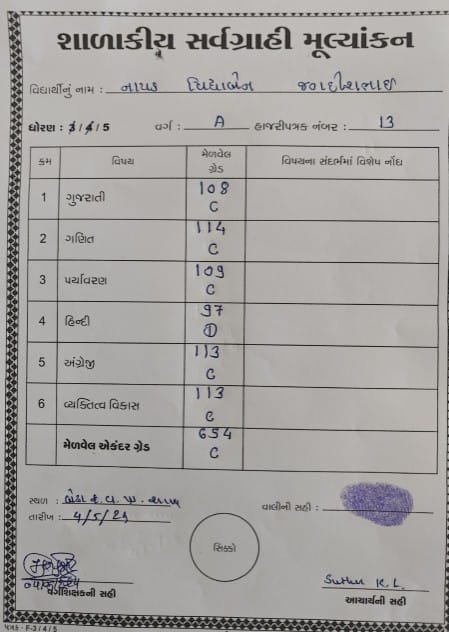 શાળાકીય સર્વગ્રાહી મૂલ્યાંકન
વિદ્યાર્થીનું નામ : નાયક વિદ્યાબેન જગદીશભાઈ
ધોરણ : 3/4/5 વર્ગ : A હાજરીપત્રક નંબર : 13
ક્રમ વિષય મેળવેલ ગ્રેડ વિષયના સંદર્ભમાં વિશેષ નોંધ
1 ગુજરાતી 108 C
2 ગણિત 114 C
3 પર્યાવરણ 109 C
4 હિન્દી 97 D
5 અંગ્રેજી 113 C
6 વ્યક્તિત્વ વિકાસ 113 C
મેળવેલ એકંદર ગ્રેડ 654 C
સ્થળ :
તારીખ : 4/5/24 વાલીની સહી :
સિક્કો
Suthar K. L.
વર્ગશિક્ષકની સહી આચાર્યની સહી
પત્રક - F-3/4/5